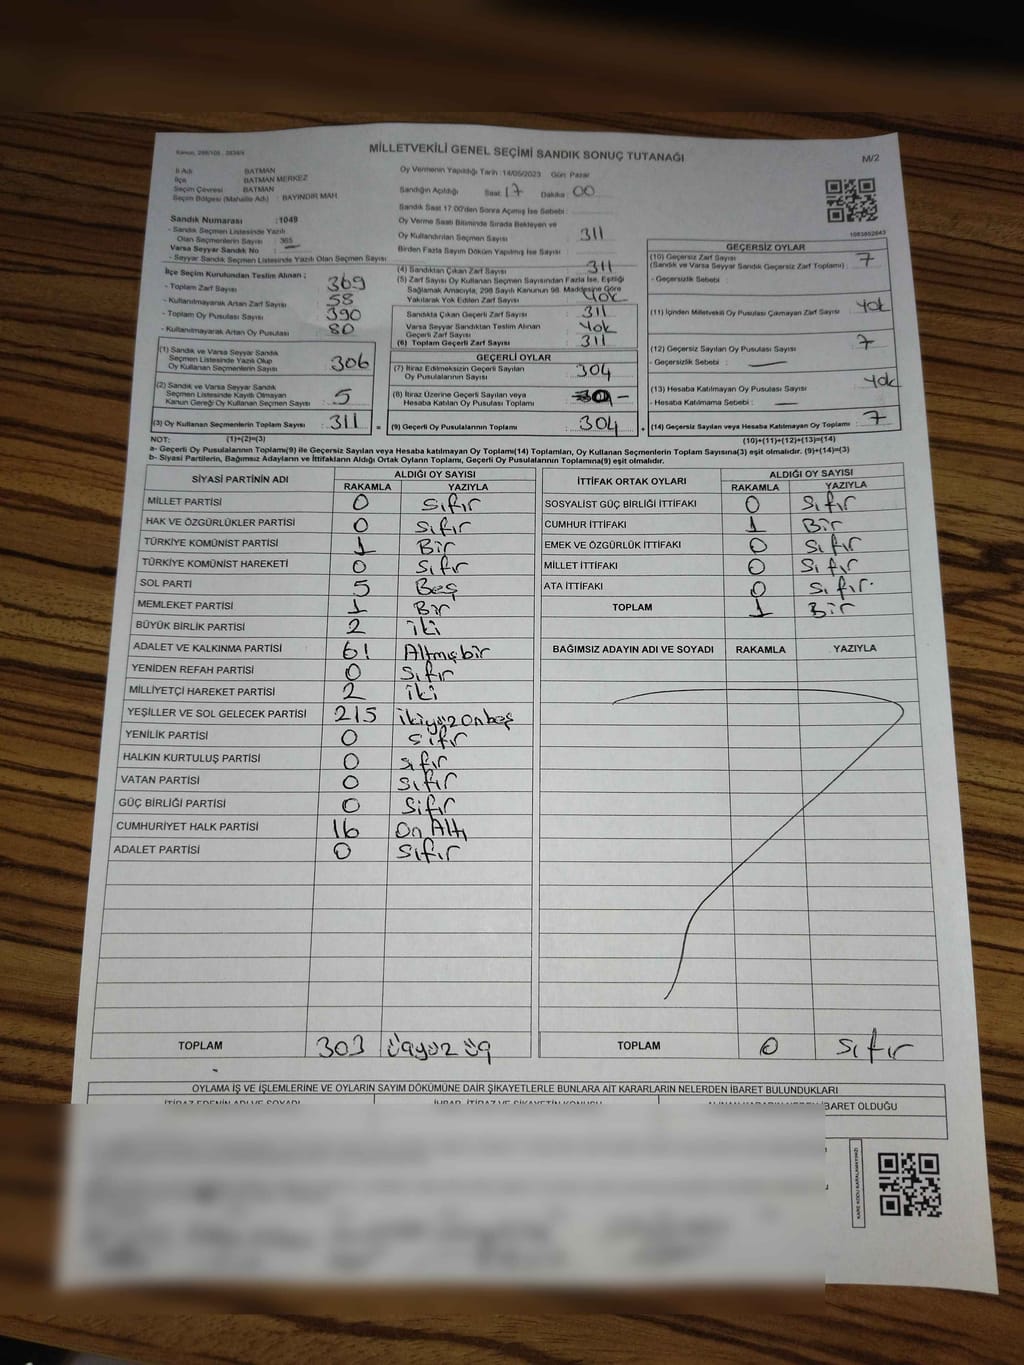 Kanun, 298/105 , 2839/4
MİLLETVEKİLİ GENEL SEÇİMİ SANDIK SONUÇ TUTANAĞI
M/2
İl Adı : BATMAN
İlçe : BATMAN MERKEZ
Seçim Çevresi : BATMAN
Seçim Bölgesi (Mahalle Adı) : BAYINDIR MAH.
Sandık Numarası : 1049
- Sandık Seçmen Listesinde Yazılı
Olan Seçmenlerin Sayısı : 365
Varsa Seyyar Sandık No : —
- Seyyar Sandık Seçmen Listesinde Yazılı Olan Seçmen Sayısı :
Oy Vermenin Yapıldığı Tarih : 14/05/2023 Gün: Pazar
Sandığın Açıldığı Saat : 17 Dakika : 00
Sandık Saat 17:00'den Sonra Açılmış İse Sebebi :
Oy Verme Saati Bitiminde Sırada Bekleyen ve
Oy Kullandırılan Seçmen Sayısı : 311
Birden Fazla Sayım Döküm Yapılmış İse Sayısı :
1083852643
İlçe Seçim Kurulundan Teslim Alınan ;
- Toplam Zarf Sayısı : 369
- Kullanılmayarak Artan Zarf Sayısı : 58
- Toplam Oy Pusulası Sayısı : 390
- Kullanılmayarak Artan Oy Pusulası : 80
(1) Sandık ve Varsa Seyyar Sandık
Seçmen Listesinde Yazılı Olup
Oy Kullanan Seçmenlerin Sayısı : 306
(2) Sandık ve Varsa Seyyar Sandık
Seçmen Listesinde Kayıtlı Olmayan
Kanun Gereği Oy Kullanan Seçmen Sayısı : 5
(3) Oy Kullanan Seçmenlerin Toplam Sayısı : 311
(4) Sandıktan Çıkan Zarf Sayısı : 311
(5) Zarf Sayısı Oy Kullanan Seçmen Sayısından Fazla İse, Eşitliği
Sağlamak Amacıyla, 298 Sayılı Kanunun 98. Maddesine Göre
Yakılarak Yok Edilen Zarf Sayısı : Yok
Sandıkta Çıkan Geçerli Zarf Sayısı : 311
Varsa Seyyar Sandıktan Teslim Alınan
Geçerli Zarf Sayısı : Yok
(6) Toplam Geçerli Zarf Sayısı : 311
GEÇERLİ OYLAR
(7) İtiraz Edilmeksizin Geçerli Sayılan
Oy Pusulalarının Sayısı : 304
(8) İtiraz Üzerine Geçerli Sayılan veya
Hesaba Katılan Oy Pusulası Toplamı : -
= (9) Geçerli Oy Pusulalarının Toplamı : 304
GEÇERSİZ OYLAR
(10) Geçersiz Zarf Sayısı : 7
(Sandık ve Varsa Seyyar Sandık Geçersiz Zarf Toplamı)
- Geçersizlik Sebebi :
(11) İçinden Milletvekili Oy Pusulası Çıkmayan Zarf Sayısı : Yok
(12) Geçersiz Sayılan Oy Pusulası Sayısı : 7
- Geçersizlik Sebebi : —
(13) Hesaba Katılmayan Oy Pusulası Sayısı : Yok
- Hesaba Katılmama Sebebi : —
+ (14) Geçersiz Sayılan veya Hesaba Katılmayan Oy Toplamı : 7
NOT: (1)+(2)=(3) (10)+(11)+(12)+(13)=(14)
a- Geçerli Oy Pusulalarının Toplamı(9) ile Geçersiz Sayılan veya Hesaba Katılmayan Oy Toplamı(14) Toplamları, Oy Kullanan Seçmenlerin Toplam Sayısına(3) eşit olmalıdır. (9)+(14)=(3)
b- Siyasi Partilerin, Bağımsız Adayların ve İttifakların Aldığı Ortak Oyların Toplamı, Geçerli Oy Pusulalarının Toplamına(9) eşit olmalıdır.
SİYASİ PARTİNİN ADI ALDIĞI OY SAYISI
RAKAMLA YAZIYLA
MİLLET PARTİSİ 0 Sıfır
HAK VE ÖZGÜRLÜKLER PARTİSİ 0 Sıfır
TÜRKİYE KOMÜNİST PARTİSİ 1 Bir
TÜRKİYE KOMÜNİST HAREKETİ 0 Sıfır
SOL PARTİ 5 Beş
MEMLEKET PARTİSİ 1 Bir
BÜYÜK BİRLİK PARTİSİ 2 iki
ADALET VE KALKINMA PARTİSİ 61 Altmışbir
YENİDEN REFAH PARTİSİ 0 Sıfır
MİLLİYETÇİ HAREKET PARTİSİ 2 iki
YEŞİLLER VE SOL GELECEK PARTİSİ 215 ikiyüzonbeş
YENİLİK PARTİSİ 0 Sıfır
HALKIN KURTULUŞ PARTİSİ 0 sıfır
VATAN PARTİSİ 0 sıfır
GÜÇ BİRLİĞİ PARTİSİ 0 Sıfır
CUMHURİYET HALK PARTİSİ 16 On Altı
ADALET PARTİSİ 0 Sıfır
TOPLAM 303 üçyüz üç
İTTİFAK ORTAK OYLARI ALDIĞI OY SAYISI
RAKAMLA YAZIYLA
SOSYALİST GÜÇ BİRLİĞİ İTTİFAKI 0 Sıfır
CUMHUR İTTİFAKI 1 Bir
EMEK VE ÖZGÜRLÜK İTTİFAKI 0 Sıfır
MİLLET İTTİFAKI 0 Sıfır
ATA İTTİFAKI 0 Sıfır
TOPLAM 1 Bir
BAĞIMSIZ ADAYIN ADI VE SOYADI RAKAMLA YAZIYLA
TOPLAM 0 Sıfır
OYLAMA İŞ VE İŞLEMLERİNE VE OYLARIN SAYIM DÖKÜMÜNE DAİR ŞİKAYETLERLE BUNLARA AİT KARARLARIN NELERDEN İBARET BULUNDUKLARI
İBARET OLDUĞU